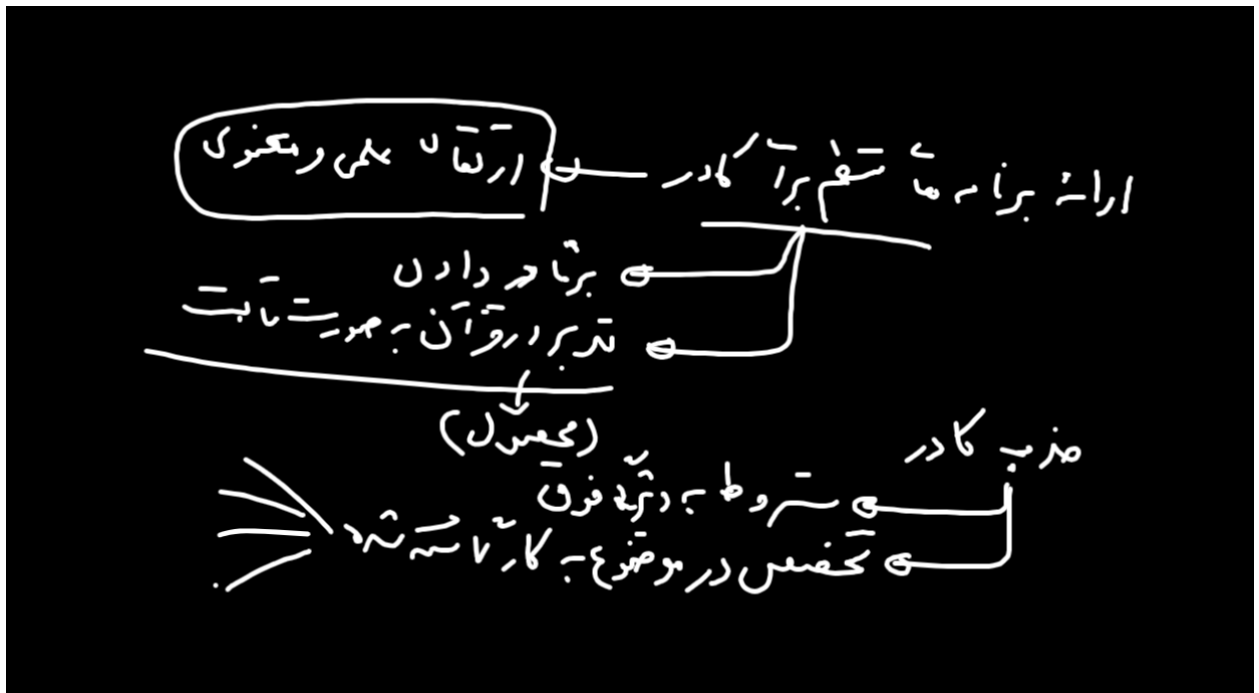 ارائه برنامه های منظم برای کادر
ارتقای علمی و معنوی
برنامه دادن
تدبر در قرآن به صورت ثابت
(محصول)
جذب کادر
مشروط به دو فوق
تخصص در موضوع به کار گاشته شده